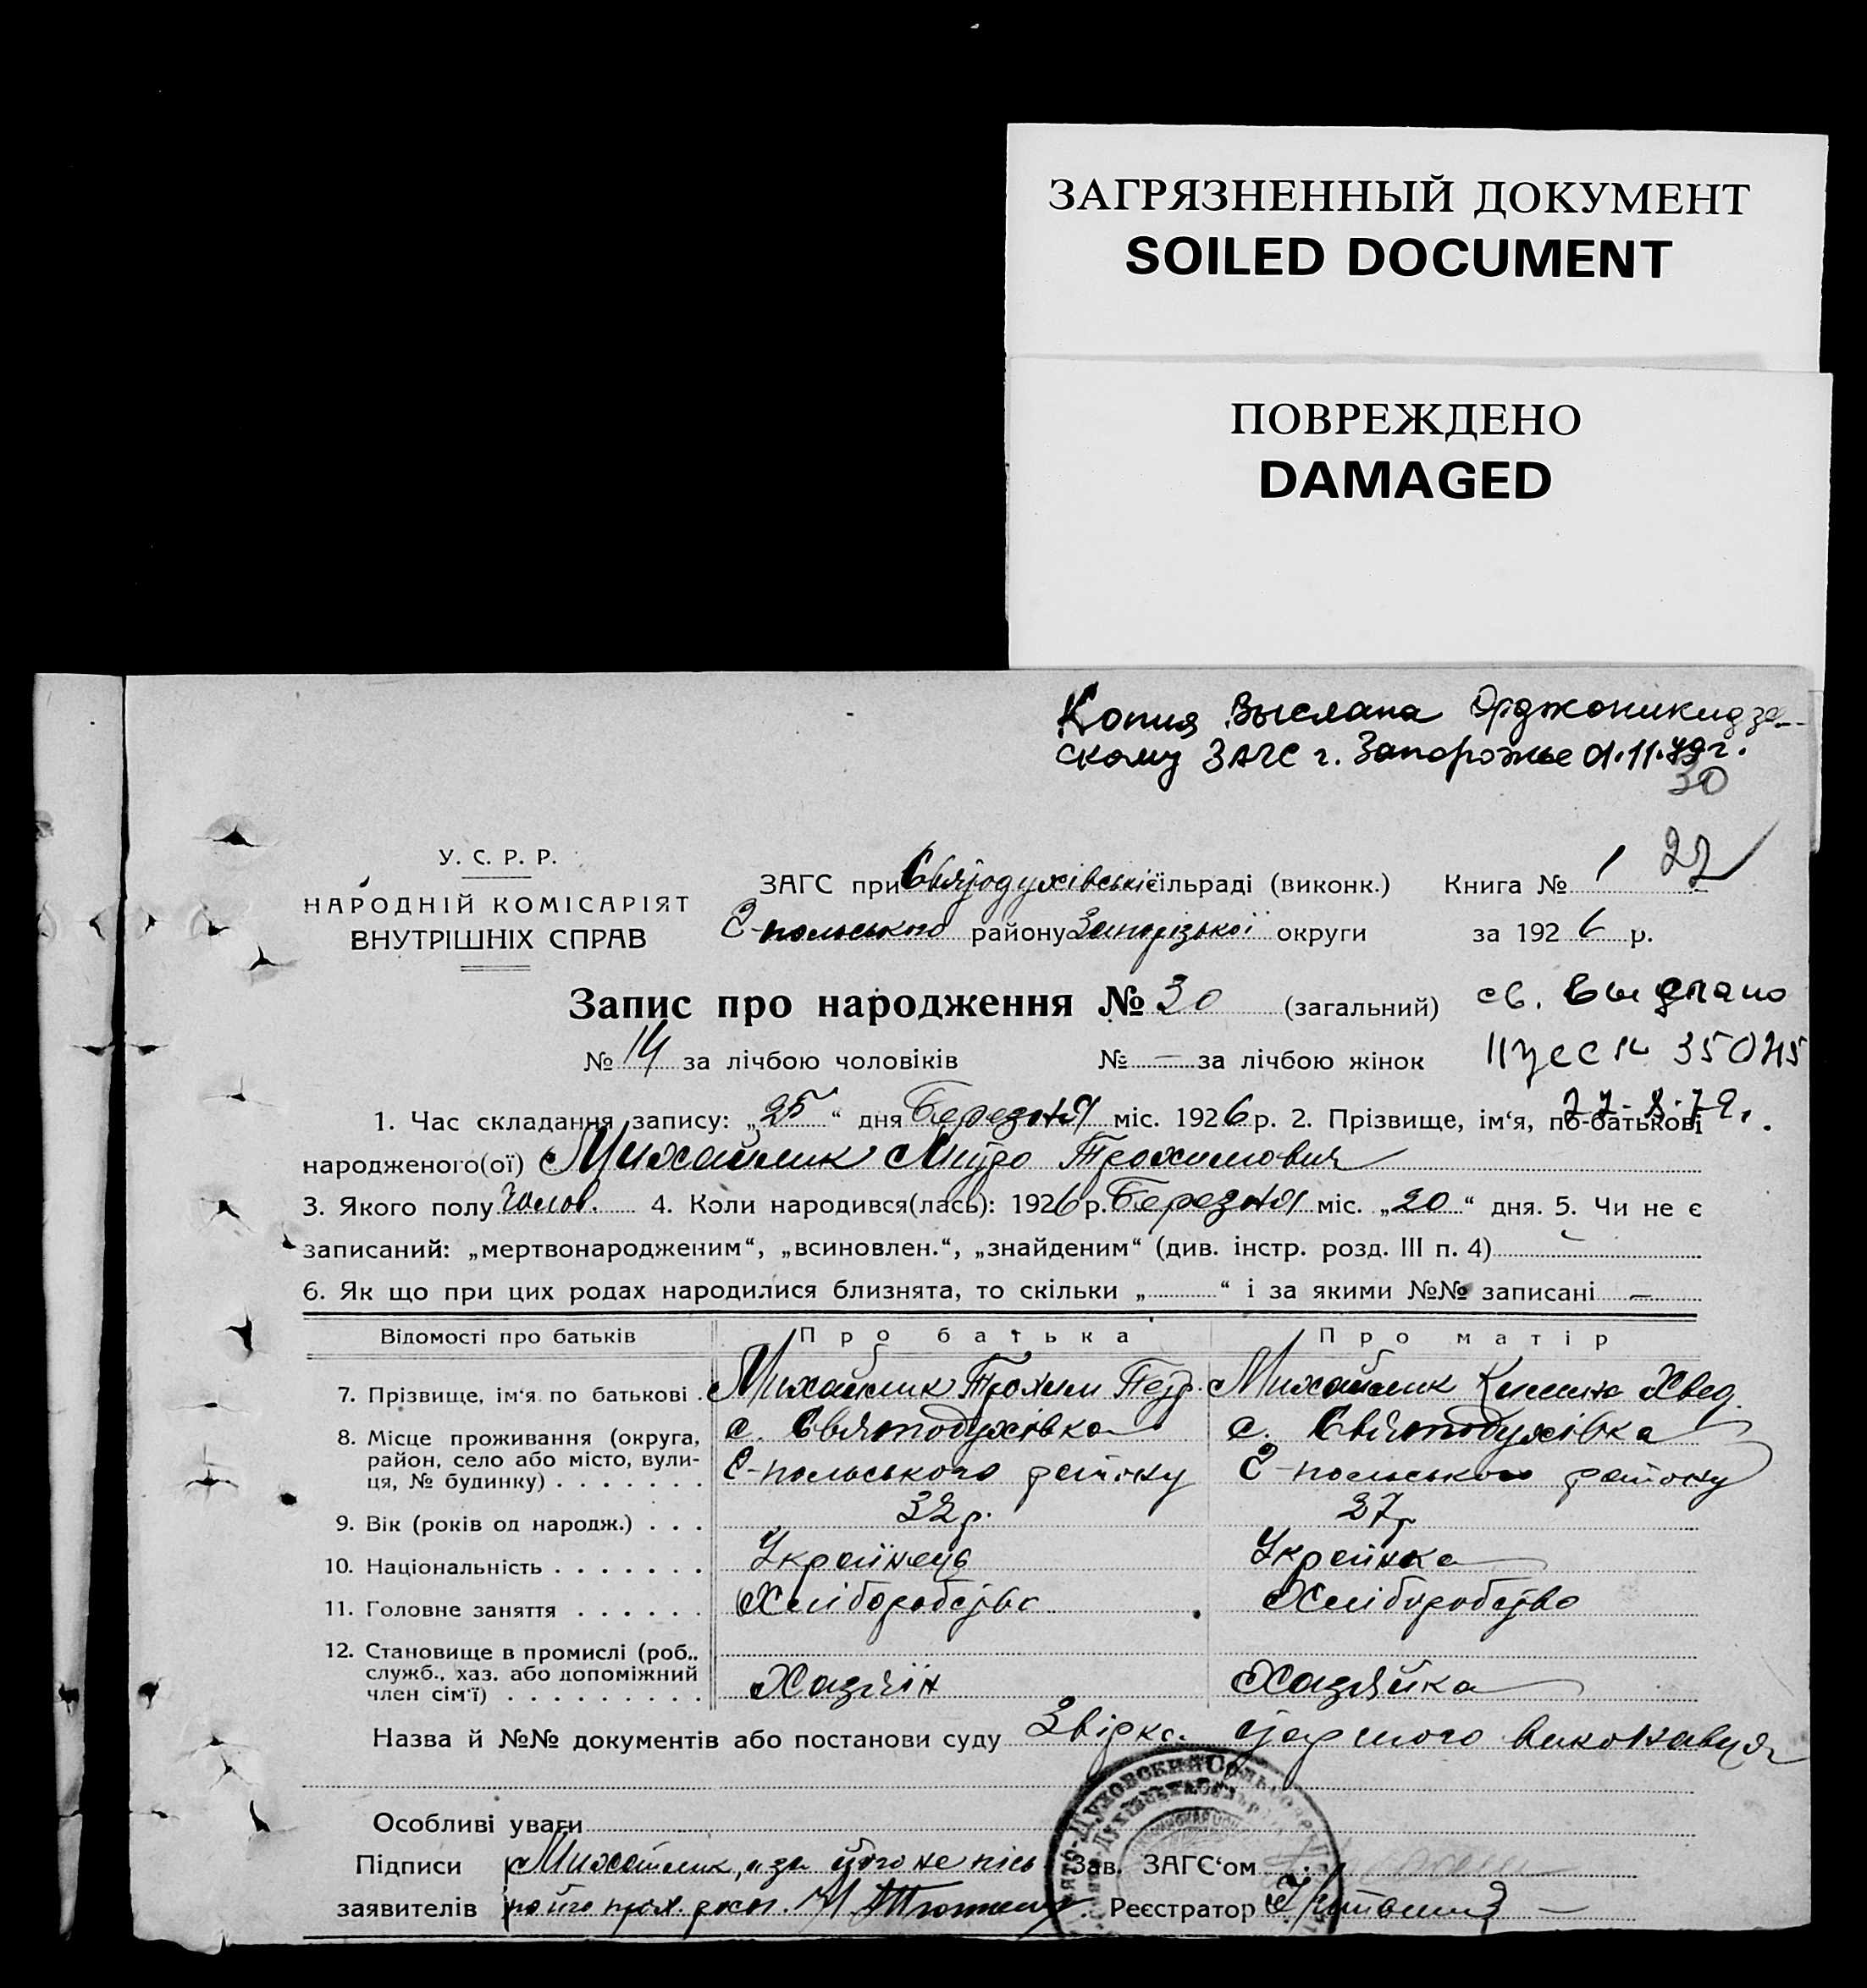 ЗАГРЯЗНЕННЫЙ ДОКУМЕНТ
SOILED DOCUMENT
ПОВРЕЖДЕНО
DAMAGED
Копия выслана Орджоникидзев-
скому ЗАГС г. Запорожье 01.11.79г.
30
У. С. Р. Р.
НАРОДНІЙ КОМІСАРІЯТ
ВНУТРІШНІХ СПРАВ
ЗАГС при Святодухівській сільраді (виконк.) Книга № 1 27
С-польського району Запорізької округи за 1926 р.
Запис про народження № 30 (загальний) св. выслано
№ 14 за лічбою чоловіків № — за лічбою жінок
1. Час складання запису: „25“ дня Березня міс. 1926 р. 2. Прізвище, ім‘я, по-батькові
народженого(ої) Михайлик Митро Трохимович
3. Якого полу Чолов. 4. Коли народився(лась): 1926 р. Березня міс. „20“ дня. 5. Чи не є
записаний: „мертвонародженим“, „всиновлен.“, „знайденим“ (див. інстр. розд. III п. 4)
6. Як що при цих родах народилися близнята, то скільки „ “ і за якими №№ записані —
Відомості про батьків Про батька Про матір
7. Прізвище, ім‘я по батькові Михайлик Трохим Петр. Михайлик Хвед.
8. Місце проживання (округа, район, село або місто, вули-ця, № будинку) с. Святодухівка с. Святодухівка
С-польського району С-польського району
9. Вік (років од народж.) 32 р. 27 р.
10. Національність Українець Українка
11. Головне заняття Хліборобство Хліборобство
12. Становище в промислі (роб., служб., хаз. або допоміжний член сім‘ї) Хазяїн Хазяйка
Назва й №№ документів або постанови суду Звірка старшого виконавця
Особливі уваги
Підписи Михайлик, а за його не пись Зав. ЗАГС‘ом
заявителів по його прох. росп. Реєстратор